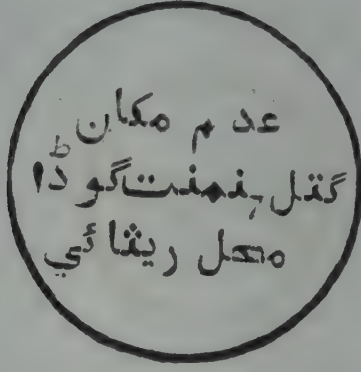 عدم مکان
گتل ہنمنت گوڈا
محل ریٹائي